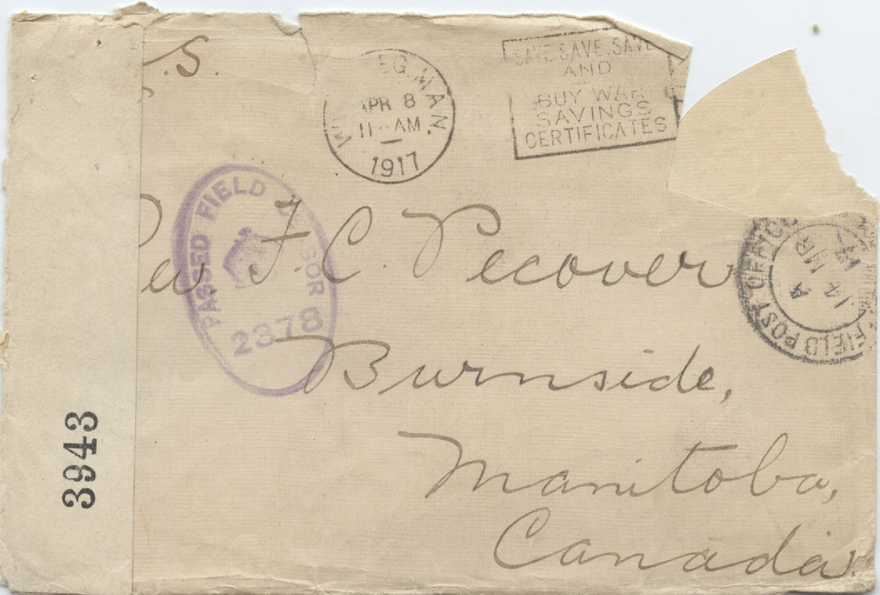 S.
EG. MAN.
APR 8
11 AM
1917
SAVE, SAVE, SAVE
AND
BUY WAR
SAVINGS
CERTIFICATES
PASSED FIELD
2378
Rev F. C. Pecover
Burnside,
Manitoba,
Canada.
FIELD POST OFFICE
A
14 MR
17
3943